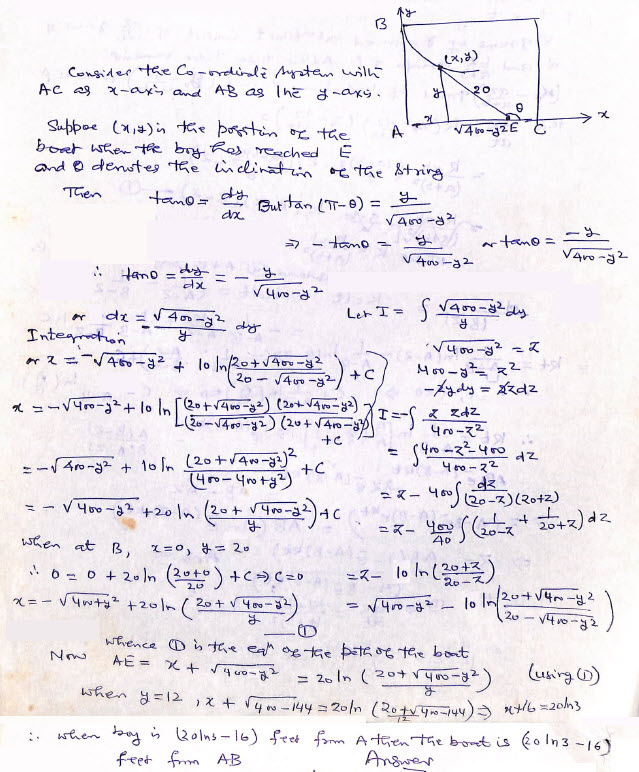 y
B
(x,y)
Consider the Co-ordinate system with
AC as x-axis and AB as the y-axis.
y
20
θ
x
A
x
√400-y² E
C
Suppose (x,y) is the position of the
boat when the boy has reached E
and θ denotes the inclination of the string
Then tanθ = dy/dx But tan(π-θ) = y/√400-y²
⇒ - tanθ = y/√400-y² or tanθ = -y/√400-y²
∴ tanθ = dy/dx = - y/√400-y²
or dx = - √400-y²/y dy
Integration
or x = -√400-y² + 10 ln (20+√400-y²/20-√400-y²) + C
x = -√400-y² + 10 ln [(20+√400-y²)(20+√400-y²)/(20-√400-y²)(20+√400-y²)] + C
= -√400-y² + 10 ln (20+√400-y²)²/(400-400+y²) + C
= -√400-y² + 20 ln (20+√400-y²/y) + C
when at B, x=0, y=20
∴ 0 = 0 + 20 ln (20+0/20) + C ⇒ C=0
x = -√400+y² + 20 ln (20+√400-y²/y)
①
Let I = ∫ √400-y²/y dy
√400-y² = z
400-y² = z²
-2ydy = 2zdz
I = -∫ z zdz/400-z²
= ∫ 400-z²-400/400-z² dz
= z - 400 ∫ dz/(20-z)(20+z)
= z - 400/40 ∫ (1/20-z + 1/20+z) dz
= z - 10 ln (20+z/20-z)
= √400-y² - 10 ln (20+√400-y²/20-√400-y²)
whence ① is the eqⁿ of the path of the boat
Now AE = x + √400-y² = 20 ln (20+√400-y²/y) (using ①)
when y=12, x + √400-144 = 20 ln (20+√400-144/12) ⇒ x+16 = 20ln3
∴ when boy is (20ln3-16) feet from A then the boat is (20ln3-16)
feet from AB Answer